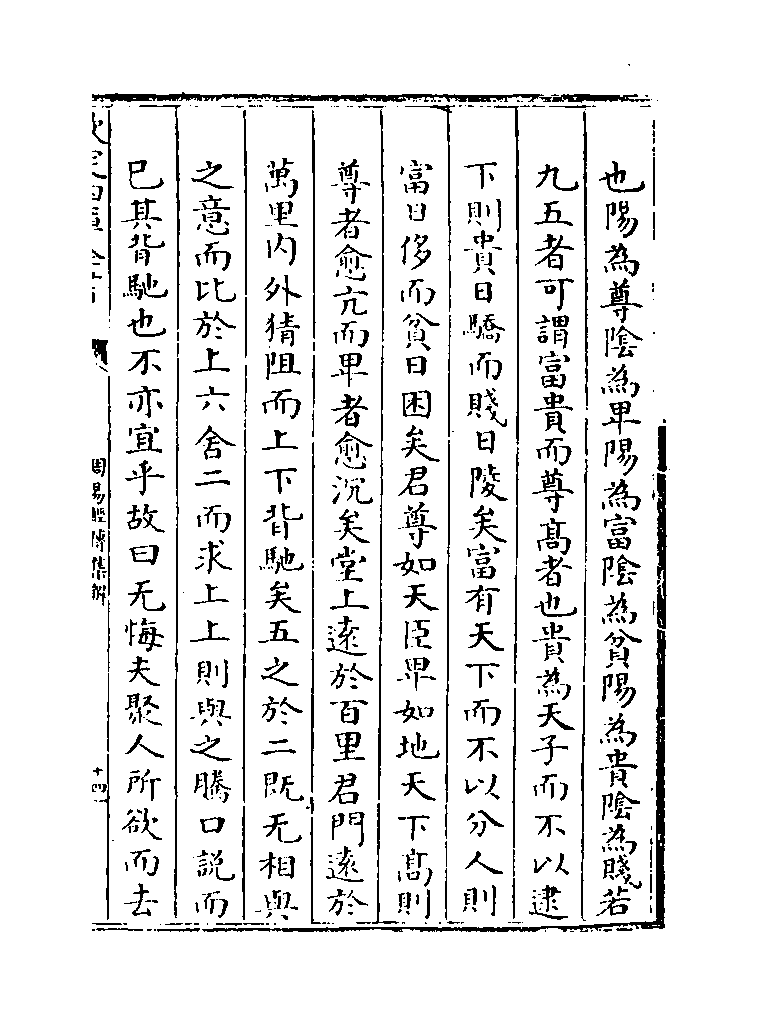 也陽為尊陰為卑陽為富陰為貧陽為貴陰為賤若
九五者可謂富貴而尊髙者也貴為天子而不以逮
下則貴日驕而賤日陵矣富有天下而不以分人則
富日侈而貧日困矣君尊如天臣卑如地天下髙則
尊者愈亢而卑者愈沉矣堂上逺於百里君門逺於
萬里内外猜阻而上下背馳矣五之於二既无相與
之意而比於上六舍二而求上上則與之騰口説而
已其背馳也不亦宜乎故曰无悔夫聚人所欲而去
欽定四庫全書
周易經傳集解
十四